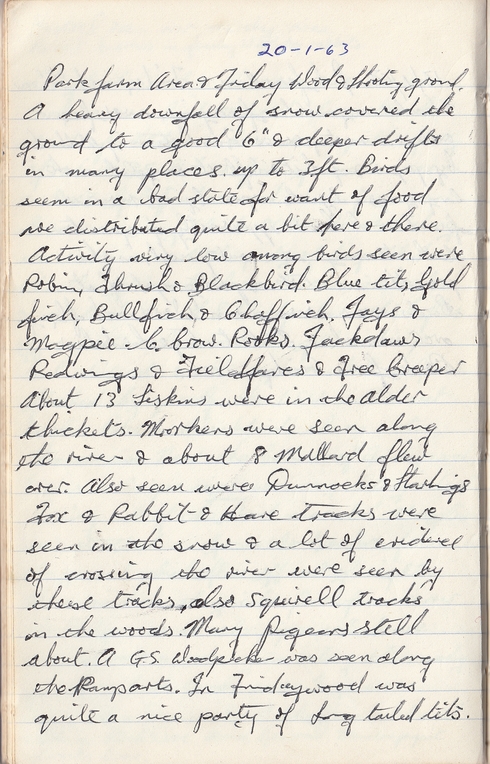 20-1-63
Park farm Area & Friday Wood & Shooting ground.
A heavy downfall of snow covered the
ground to a good 6" & deeper drifts
in many places. up to 3ft. Birds
seem in a bad state for want of food
we distributed quite a bit here & there.
Activity very low among birds seen were
Robin, Thrush & Blackbird. Blue tits, Gold
finch, Bullfinch, & Chaffinch. Jays &
Magpie. C. Crow. Rooks. Jackdaws
Redwings & Fieldfares & Tree Creeper
About 13 Siskins were in the alder
thickets. Moorhens were seen along
the river & about 8 Mallard flew
over. Also seen were Dunnocks & Starlings
Fox & Rabbit & Hare tracks were
seen in the snow & a lot of evidence
of crossing the river were seen by
these tracks, also Squirell tracks
in the woods. Many pigeons still
about. A G.S. Woodpecker was seen along
the Ramparts. In Fridaywood was
quite a nice party of Long tailed tits.